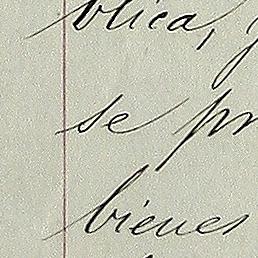 blica,
se pr
bienes